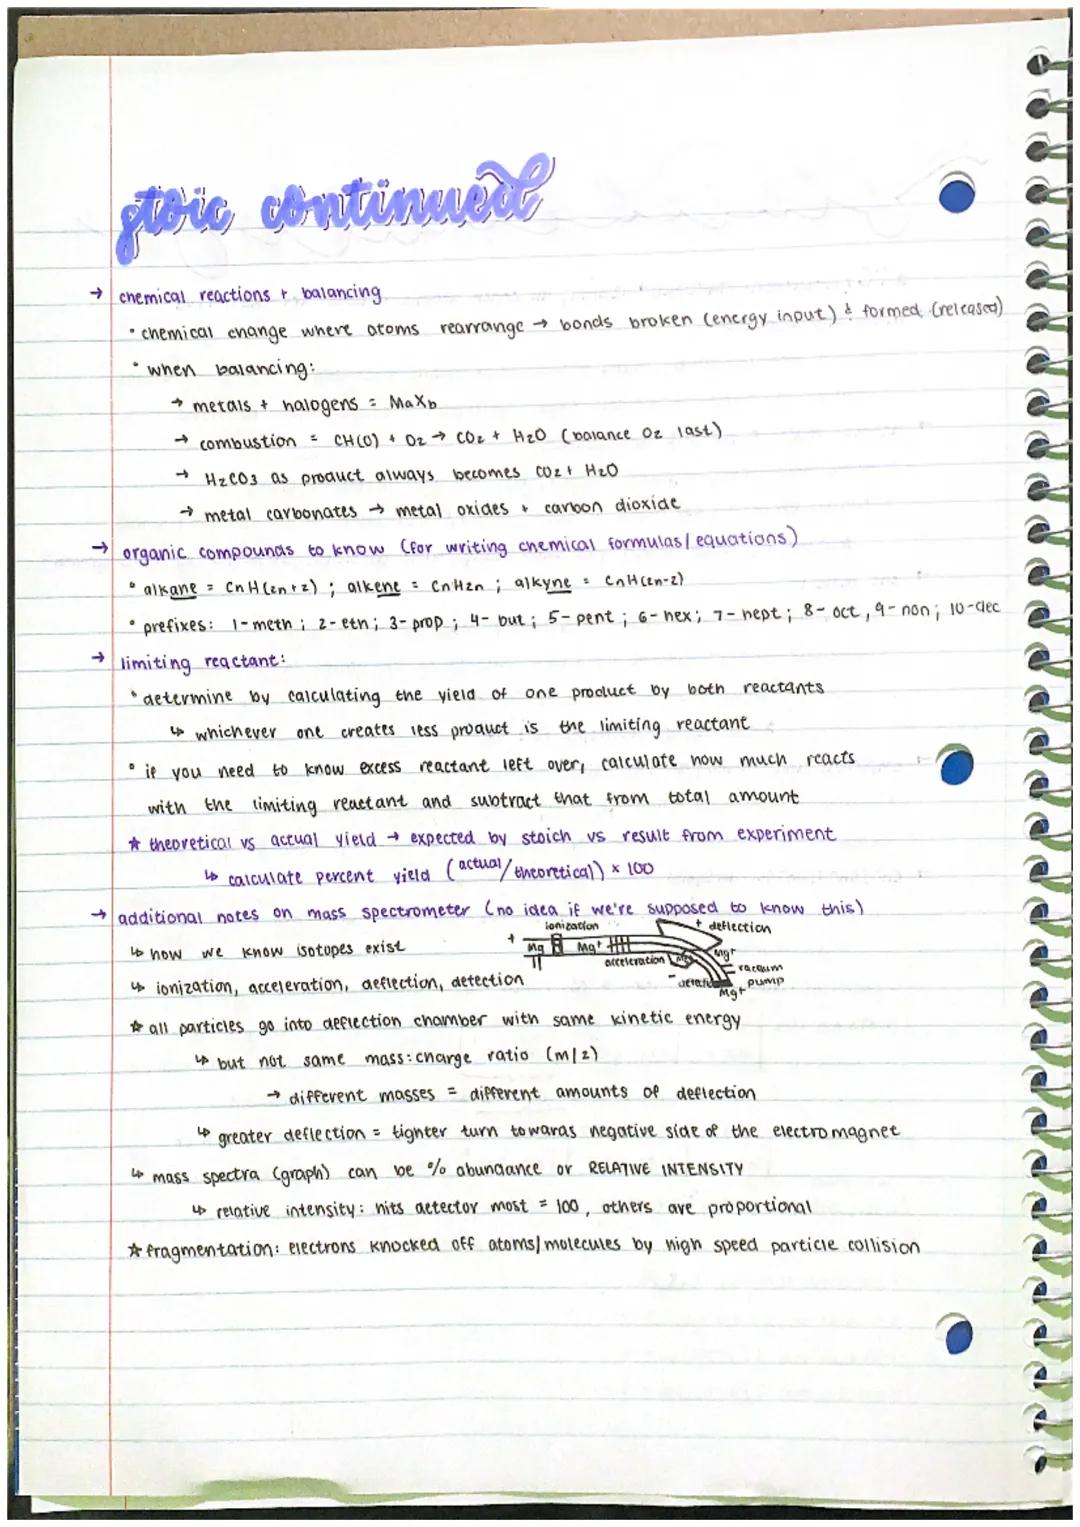 stoic continued
→ chemical reactions + balancing
• chemical change where atoms rearrange → bonds broken (energy input) & formed (released)
• when balancing:
→ metals + halogens = MaXb
→ combustion = CH(O) + O2 → CO2 + H2O (balance O2 last)
→ H2CO3 as product always becomes CO2 + H2O
→ metal carbonates → metal oxides + carbon dioxide
→ organic compounds to know (for writing chemical formulas/equations)
• alkane = CnH(2n+2) ; alkene = CnH2n ; alkyne = CnH(2n-2)
• prefixes: 1-meth ; 2-eth ; 3-prop ; 4-but ; 5-pent ; 6-hex ; 7-hept ; 8-oct , 9-non ; 10-dec
→ limiting reactant:
• determine by calculating the yield of one product by both reactants
↳ whichever one creates less product is the limiting reactant
• if you need to know excess reactant left over, calculate how much reacts
with the limiting reactant and subtract that from total amount
☆ theoretical vs actual yield → expected by stoich vs result from experiment
↳ calculate percent yield (actual/theoretical) × 100
→ additional notes on mass spectrometer (no idea if we're supposed to know this)
ionization
+ deflection
↳ how we know isotopes exist
+
Mg
Mg+
acceleration
Mg+
Mg+
vacuum
pump
-
Mg+
↳ ionization, acceleration, deflection, detection
☆ all particles go into deflection chamber with same kinetic energy
↳ but not same mass:charge ratio (m/z)
→ different masses = different amounts of deflection
↳ greater deflection = tighter turn towards negative side of the electromagnet
↳ mass spectra (graph) can be % abundance or RELATIVE INTENSITY
↳ relative intensity: hits detector most = 100, others are proportional
☆ fragmentation: electrons knocked off atoms/molecules by high speed particle collision